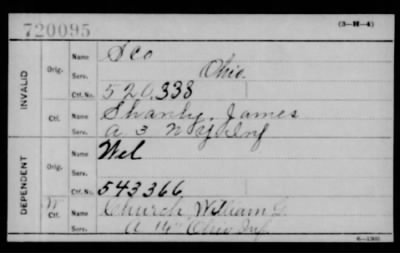 720095
(3—H—4)
INVALID
Orig.
Name Sco
Serv. Ohio
Ctf. No. 520,338
Ctf.
Name Shanly, James
Serv. A 3 N Y Inf
DEPENDENT
Orig.
Name Wel
Serv.
Ctf. No. 543366
W Ctf.
Name Church William G.
Serv. A 14" Ohio Inf